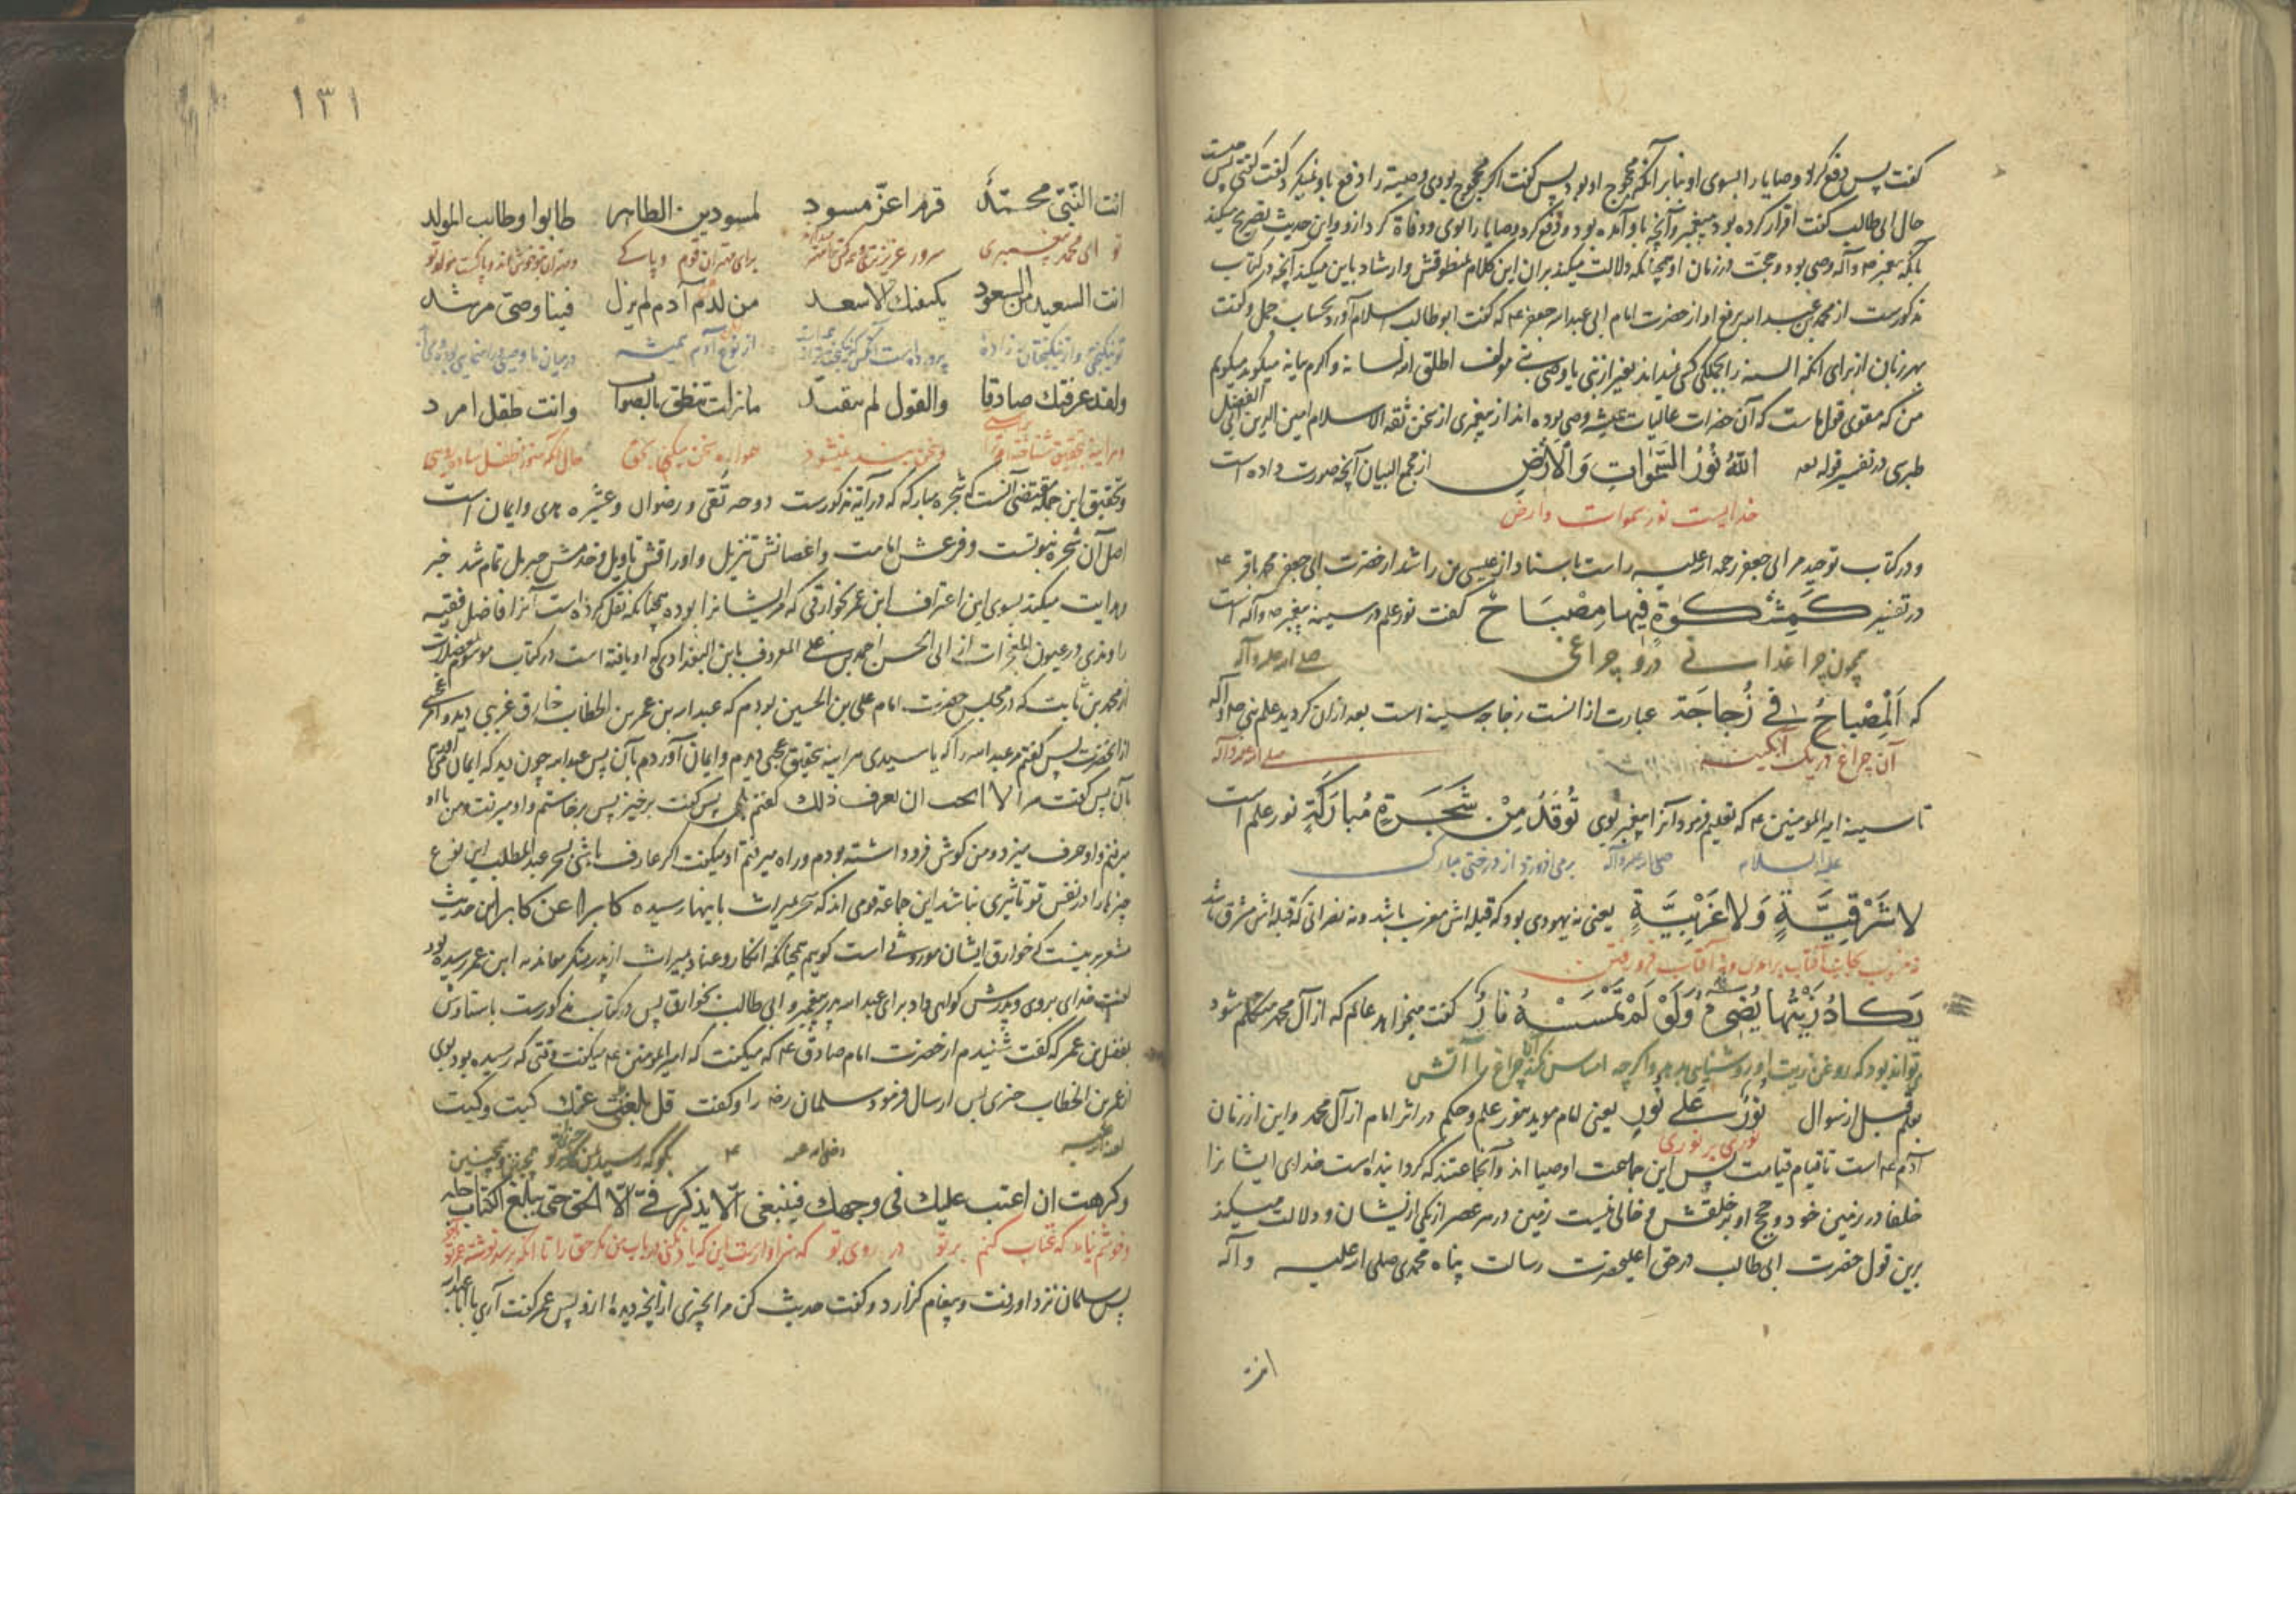 گفت پس دفع کرد وصایا را بسوی او بنابر آنکه محجوج او بود پس گفت اگر محجوج بودی وصیت را دفع باو نمیکرد گفت گفتم پس چیست
حال ابی طالب گفت اقرار کرده بود به پیغمبر و آنچه باو آمده بود و دفع کرد وصایا را بوی و وفاة کرد از و این حدیث تصریح میکند
بآنکه پیغمبر ص وآله وصی بود و حجت در زمان او همچنانکه دلالت میکند بر آن این کلام منطوقش و ارشاد باین میکند آنچه در کتاب
مذکورست از محمد بن عبد الله برفع او از حضرت امام ابی عبد الله جعفر ع که گفت ابو طالب اسلام آورد بحساب جمل و گفت
بهر زبان از برای آنکه السنه را بجملگی کسی نمیداند بغیر از نبی یا وصی نبی مولف اطلق الله لسانه و اکرم بیانه میگوید میگویم
من که مقوی قولهاست که آن حضرات عالیات همیشه وصی بوده اند از پیغمبری از سخن ثقة الاسلام امین الدین ابی علی الفضل
طبری در تفسیر قوله تعه اَللّٰهُ نُورُ السَّمٰوَاتِ وَالْاَرْضِ از مجمع البیان آنچه صورت داده است
خدایست نور سموات وارض
و در کتاب توحید مر ابی جعفر رحمه الله علیه راست باسناد از عیسی بن راشد از حضرت ابی جعفر محمد باقر ع
در تفسیر کَمِشْکٰوةٍ فِیهَا مِصْبَاحٌ گفت نور علم در سینه پیغمبر ص وآله است
همچون چراغدانی در و چراغی صلی الله علیه وآله
که اَلْمِصْبَاحُ فِی زُجَاجَةٍ عبارت از آنست زجاجه سینه است بعد ازان گردید علم نبی صلی وآله
آن چراغ در یک آبگینه صلی الله علیه وآله
تا سینه امیر المومنین ع که تعلیم فرمود آنرا پیغمبر بوی تُوقَدُ مِنْ شَجَرَةٍ مُبَارَکَةٍ نور علم است
علیه السلام صلی الله علیه وآله برمی افروزد از درختی مبارک
لَا شَرْقِیَّةٍ وَلَا غَرْبِیَّةٍ یعنی نه یهودی بود که قبله اش مغرب باشد و نه نصرانی که قبله اش مشرق باشد
آفتاب برآمدن و نه آفتاب فرو رفتن
یَکَادُ زَیْتُهَا یُضِیءُ وَلَوْ لَمْ تَمْسَسْهُ نَارٌ گفت میخواهد عالم که از آل محمد متکلم شود
تواند بود که روغن زیت او روشنایی بدهد و اگر چه امساس نکند آن چراغ را آتش
بعلم قبل از سوال نُورٌ عَلٰی نُورٍ یعنی امام موید بنور علم و حکم در اثر امام از آل محمد و این از زمان
نوری بر نوری
آدم ع است تا قیام قیامت پس این جماعت اوصیا اند و آنجماعتند که گردانیده است خدای ایشانرا
خلفا در زمین خود و حجج او بر خلقش و خالی نیست زمین در هر عصر از یکی از ایشان و دلالت میکند
برین قول حضرت ابی طالب در حق اعلیحضرت رسالت پناه محمدی صلی الله علیه وآله
انت
۱۳۱
انت النّبیّ محمّدُ قرم اعزّ مسود لمسودین الطاهر طابوا وطاب المولد
تو ای محمد پیغمبری سرور عزیز برای مهتران قوم و پاک و مهتران تو خوش اند و پاکست مولد تو
انت السعید من السعود یکنفنك الاسعد من لدم آدم لم یزل فینا وصیّ مرشد
تو نیکبختی و از نیکبختان زاده از نوع آدم همیشه در میان ما وصی و راهنمایی بوده
ولقد عرفتك صادقا والقول لم یتفنّد ما زلت تنطق بالصواب وانت طفل امرد
هر اینه بتحقیق شناختم ترا و سخن نمیشود همواره سخن میکنی بحق حال آنکه هنوز طفل ساده رویی
و تحقیق این جمله مقتضی آنست که شجره مبارکه که در آیه مذکورست دوحه تقی و رضوان و عشیره هدی و ایمان است
اصل آن شجره نبوتست و فرعش امامت و اغصانش تنزیل و اوراقش تاویل و خدمش جبریل تمام شد خبر
هدایت میکند بسوی این اعتراف ابن عمر بخوارقی که مر ایشانرا بوده همچنانکه نقل کرده است آنرا فاضل فقیه
راوندی در عیون المعجزات از ابی الحسن احمد بن علی المعروف بابن البغدادی که او یافته است در کتاب موسوم
از محمد بن ثابت که در مجلس حضرت امام علی بن الحسین بودم که عبد الله بن عمر بن الخطاب خارق غریبی دید
از آنحضرت پس گفتم مر عبد الله را که یا سیدی هر اینه بتحقیق عجبی دیدم و ایمان آوردم بآن پس عبد الله چون دید که ایمان آوردم
بآن پس گفت مرا الا احب ان تعرف ذلك گفتم بلی پس گفت برخیز پس برخاستم و او میرفت و من با او
میرفتم و او حرف میزد و من گوش فرو داشته بودم و راه میرفتم او میگفت اگر عارف باشی سحر عبد المطلب این نوع
چیزها را در نفس تو تاثیری نباشد این جماعه قومی اند که سحر میراث باینها رسیده کابرا عن کابر این حدیث
مشعر برینست که خوارق ایشان موروثی است گویم همچنانکه انکار و عناد بمیراث از پدر منکر معاند به ابن عمر رسیده بود
لعنت خدای بروی و پدرش گواهی داد برای عبد الله پدر پیغمبر و ابی طالب بخوارق پس در کتاب مذکورست باسنادش
بفضل بن عمر که گفت شنیدم از حضرت امام صادق ع که میگفت که امیر المومنین ع میگفت وقتی که رسیده بود بوی
از عمر بن الخطاب چیزی پس ارسال فرمود سلمان رضه را و گفت قل بلغنی عنك کیت وکیت
رضی الله عنه ع بگو که رسید بمن از تو چنین و چنین
وکرهت ان اعتب علیك فی وجهك فینبغی الّا یذکر فیّ الّا الحق حتی یبلغ الکتاب اجله
و خوشم نیامد که عتاب کنم بر تو در روی تو که سزاوارست این که یاد نکنی در باب من مگر حق را تا آنکه برسد نوشته
پس سلمان نزد او رفت و پیغام گزارد و گفت حدیث کن مرا چیزی از آنچه دیده ازو پس عمر گفت آری یا ابا عبد الله